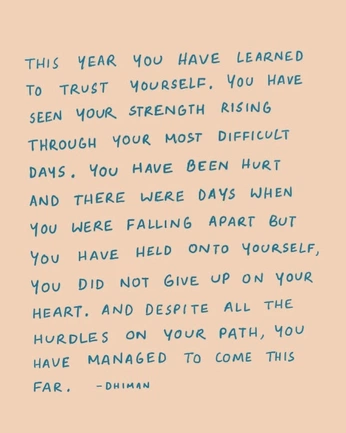 THIS YEAR YOU HAVE LEARNED
TO TRUST YOURSELF. YOU HAVE
SEEN YOUR STRENGTH RISING
THROUGH YOUR MOST DIFFICULT
DAYS. YOU HAVE BEEN HURT
AND THERE WERE DAYS WHEN
YOU WERE FALLING APART BUT
YOU HAVE HELD ONTO YOURSELF,
YOU DID NOT GIVE UP ON YOUR
HEART. AND DESPITE ALL THE
HURDLES ON YOUR PATH, YOU
HAVE MANAGED TO COME THIS
FAR. -DHIMAN